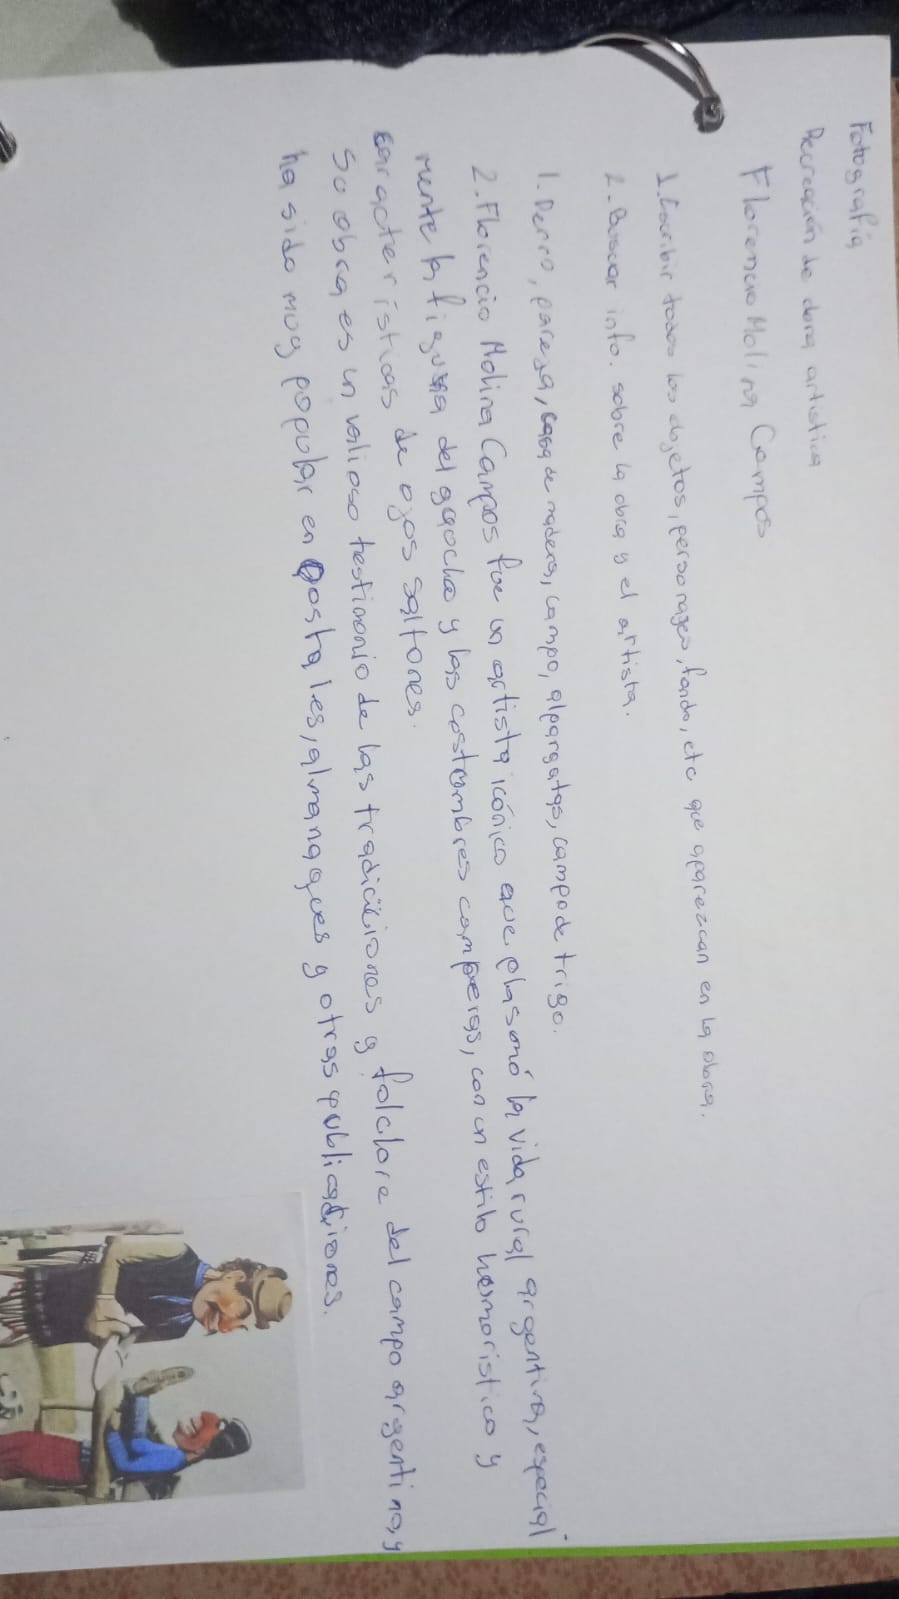 Fotografía
Recreación de obra artística
Florencio Molina Campos
1. Escribir todos los objetos, personages, fondo, etc que aparezcan en la obra.
2. Buscar info. sobre la obra y el artista.
1. Perro, pareja, casa de madera, campo, alpargatas, campo de trigo.
2. Florencio Molina Campos fue un artista icónico que plasmó la vida rural argentina, especial-
mente la figura del gaucho y las costumbres camperas, con un estilo humoristico y
caracteristicas de ojos saltones.
Su obra es un valioso testimonio de las tradiciones y folclore del campo argentino, y
ha sido muy popular en postales, almanaques y otras publicaciones.